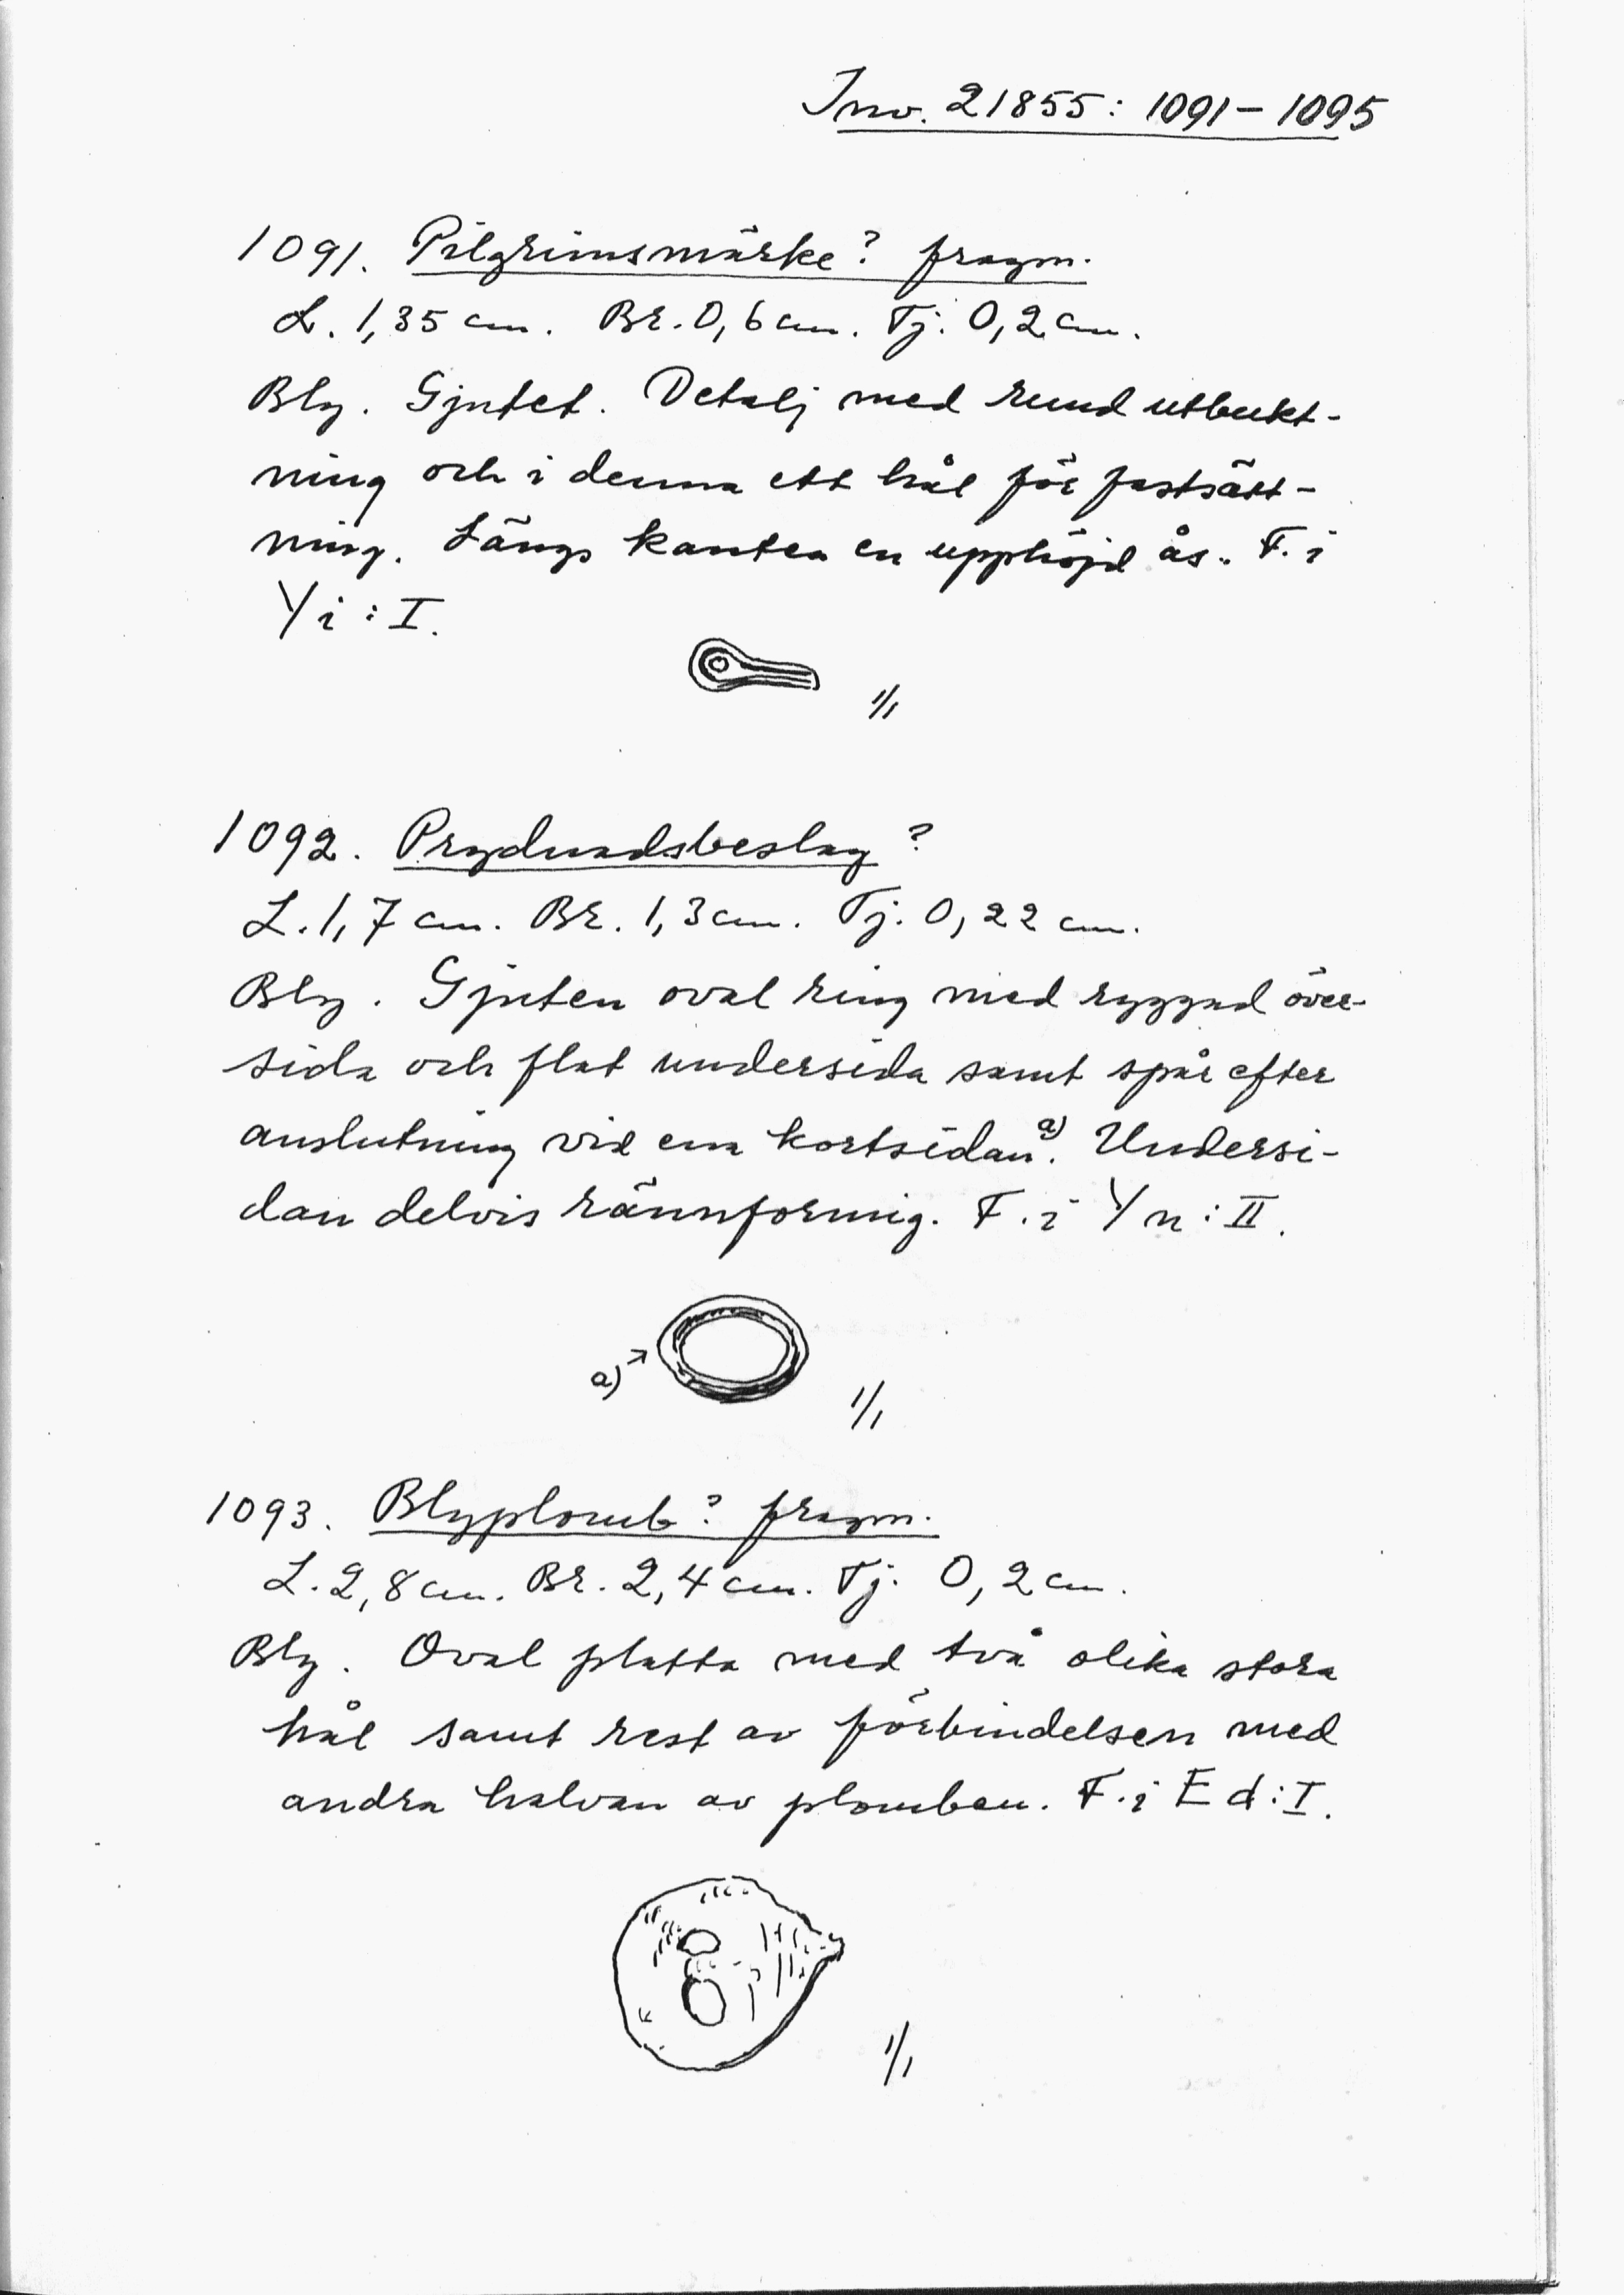 Inv. 21855: 1091-1095
1091. Pilgrimsmärke? fragm.
L. 1,35 cm. Br. 0,6 cm. Tj. 0,2 cm.
Bly. Gjutet. Detalj med rund utbukt-
ning och i denna ett hål för fastsätt-
ning. Längs kanten en upphöjd ås. F. i
Y i : I.
1/1
1092. Prydnadsbeslag?
L. 1,7 cm. Br. 1,3 cm. Tj. 0,22 cm.
Bly. Gjuten oval ring med ryggad över-
sida och flat undersida samt spår efter
anslutning vid ena kortsidan a). Undersi-
dan delvis rännformig. F. i Y n : II.
a)→
1/1
1093. Blyplomb? fragm.
L. 2,8 cm. Br. 2,4 cm. Tj. 0,2 cm.
Bly. Oval platta med två olika stora
hål samt rest av förbindelsen med
andra halvan av plomben. F. i E d : I.
1/1